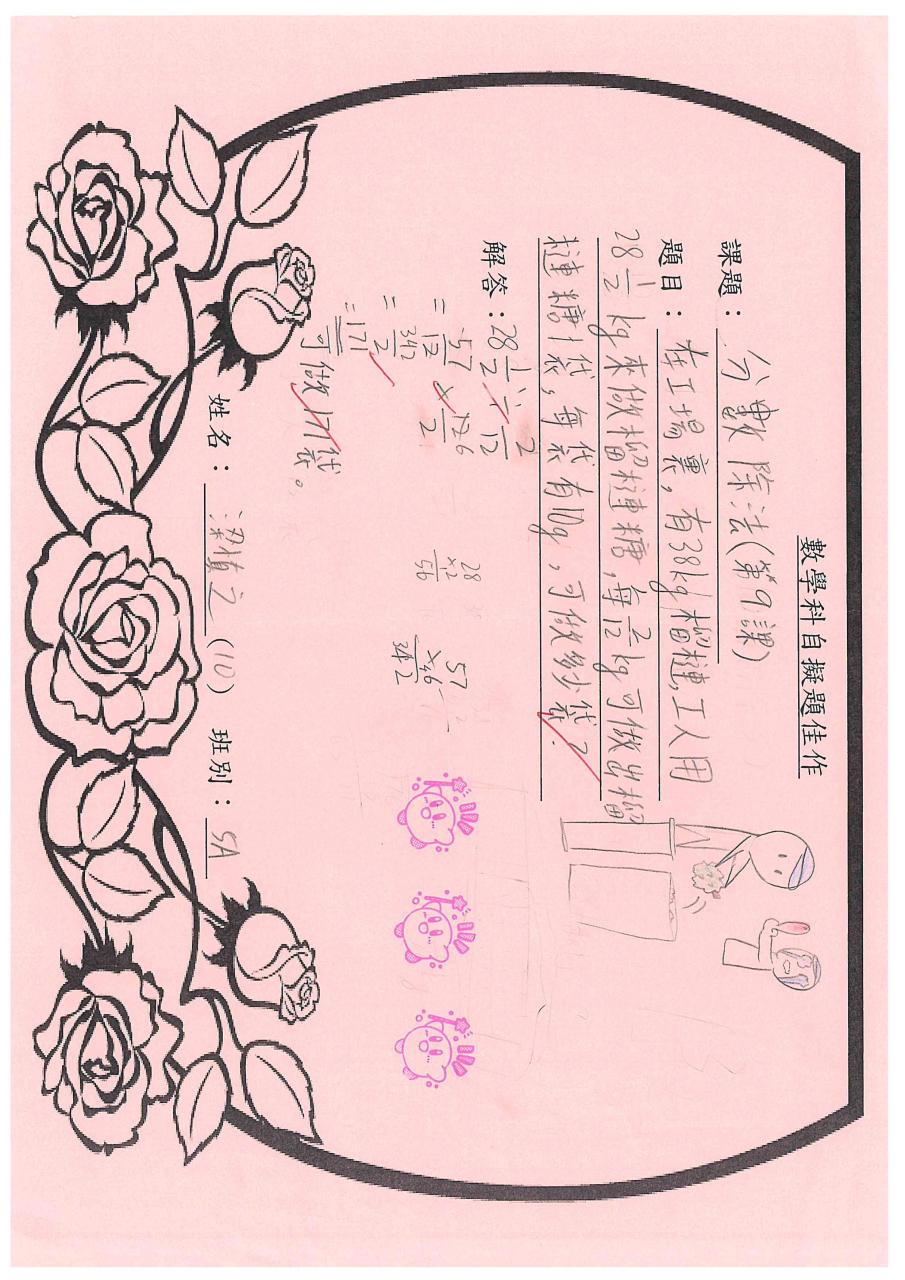 數學科自擬題佳作
課題：分數除法(第9課)
題目：在工場裏，有38kg榴槤，工人用
28 1/2 kg來做榴槤糖，每 2/12 kg可做出榴
槤糖1袋，每袋有10g，可做多少袋？
解答：28 1/2 ÷ 2/12
= 57/12 × 126/2
= 342/2
= 171
可做171袋。
28
×2
56
57
×6
342
姓名：梁慎之(10) 班別：5A